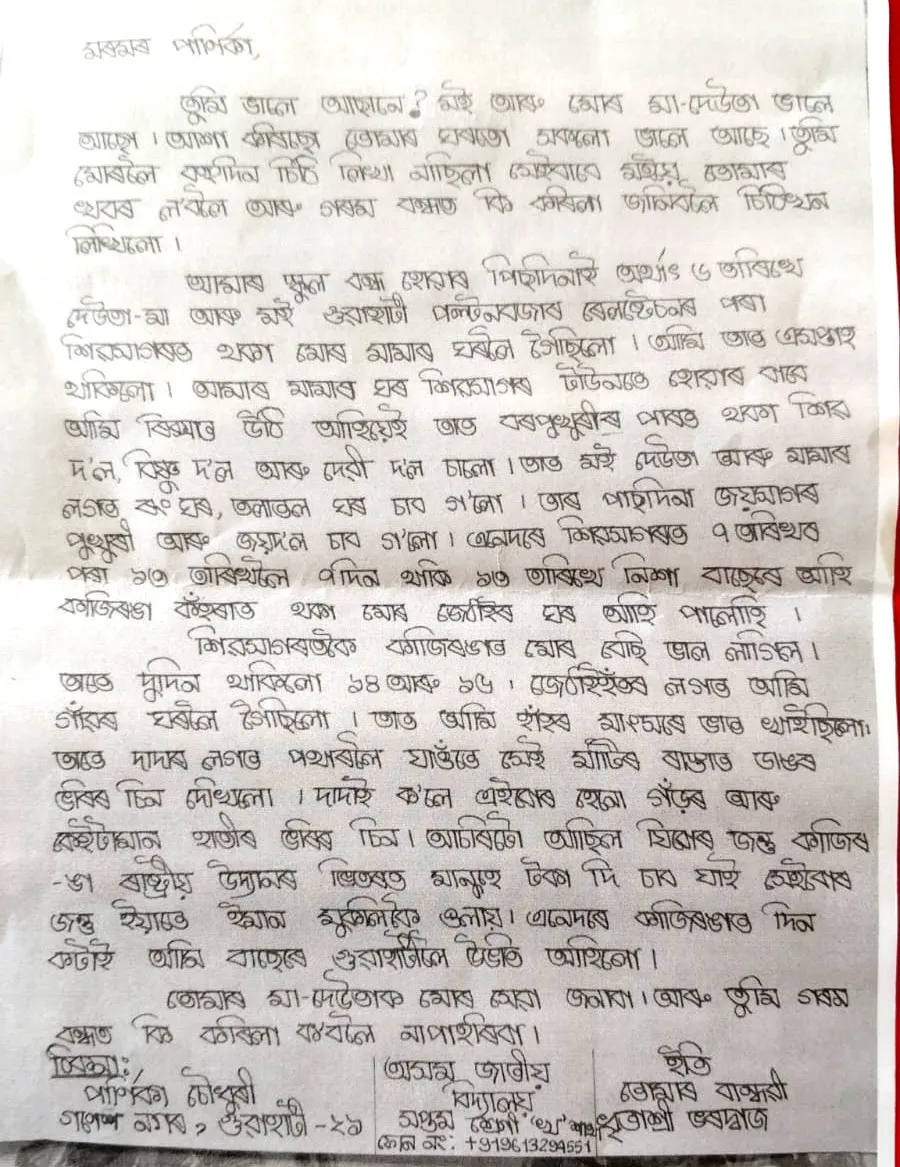 মৰমৰ পাৰ্ণিকা,
তুমি ভালে আছানে? মই আৰু মোৰ মা-দেউতা ভালে
আছো। আশা কৰিছো তোমাৰ ঘৰতো সকলো ভালে আছে। তুমি
মোৰলৈ বহুদিন চিঠি লিখা নাছিলা সেইবাবে মইয়ে তোমাৰ
খবৰ ল'বলৈ আৰু গৰম বন্ধত কি কৰিলা জানিবলৈ চিঠিখন
লিখিলো।
আমাৰ স্কুল বন্ধ হোৱাৰ পিছদিনাই অৰ্থাৎ ৬ তাৰিখে
দেউতা-মা আৰু মই গুৱাহাটী পল্টনবজাৰ ৰেলষ্টেচনৰ পৰা
শিৱসাগৰত থকা মোৰ মামাৰ ঘৰলৈ গৈছিলো। আমি তাত এসপ্তাহ
থাকিলো। আমাৰ মামাৰ ঘৰ শিৱসাগৰ টাউনতে হোৱাৰ বাবে
আমি ৰিক্সাত উঠি আহিয়েই তাত বৰপুখুৰীৰ পাৰত থকা শিৱ
দ'ল, বিষ্ণু দ'ল আৰু দেৱী দ'ল চালো। তাত মই দেউতা আৰু মামাৰ
লগত ৰংঘৰ, তলাতল ঘৰ চাব গ'লো। তাৰ পাছদিনা জয়সাগৰ
পুখুৰী আৰু জয়দ'ল চাব গ'লো। এনেদৰে শিৱসাগৰত ৭ তাৰিখৰ
পৰা ১৩ তাৰিখলৈ ৭দিন থাকি ১৩ তাৰিখে নিশা বাছেৰে আহি
কাজিৰঙা কঁহৰাত থকা মোৰ জেঠাইৰ ঘৰ আহি পালোহি।
শিৱসাগৰতকৈ কাজিৰঙাত মোৰ বেছি ভাল লাগিল।
তাতে দুদিন থাকিলো ১৪ আৰু ১৫। জেঠাইহঁতৰ লগত আমি
গাঁৱৰ ঘৰলৈ গৈছিলো। তাত আমি হাঁহৰ মাংসৰে ভাত খাইছিলো।
তাতে দাদাৰ লগত পথাৰলৈ যাওঁতে সেই মাটিৰ ৰাস্তাত ডাঙৰ
ভৰিৰ চিন দেখিলো। দাদাই ক'লে এইবোৰ হেনো গঁড়ৰ আৰু
কেইটামান হাতীৰ ভৰিৰ চিন। আচৰিটো আছিল যিবোৰ জন্তু কাজিৰ
-ঙা ৰাষ্ট্ৰীয় উদ্যানৰ ভিতৰত মানুহে টকা দি চাব যাই সেইবোৰ
জন্তু ইয়াতে ইমান মুকলিকৈ ওলায়। এনেদৰে কাজিৰঙাত দিন
কটাই আমি বাছেৰে গুৱাহাটীলৈ উভতি আহিলো।
তোমাৰ মা-দেউতাক মোৰ সেৱা জনাবা। আৰু তুমি গৰম
বন্ধত কি কৰিলা ক'বলৈ নাপাহৰিবা।
ঠিকনা:
পাৰ্ণিকা চৌধুৰী
গণেশ নগৰ, গুৱাহাটী -২৯
অসম জাতীয়
বিদ্যালয়
সপ্তম শ্ৰেণী 'খ' শাখা
ফোন নং: +919613294551
ইতি
তোমাৰ বান্ধৱী
ধৃতাশ্ৰী ভৰদ্বাজ